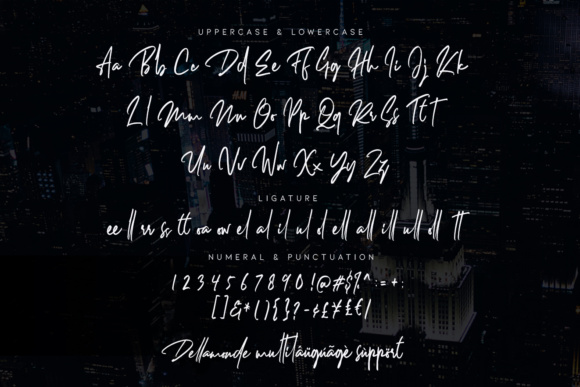 UPPERCASE & LOWERCASE
Aa Bb Cc Dd Ee Ff Gg Hh Ii Jj Kk
Ll Mm Nn Oo Pp Qq Rr Ss Tt T
Uu Vv Ww Xx Yy Zz
LIGATURE
ee ll rr ss tt oa ow el al il ul ol ell all ill ull oll TT
NUMERAL & PUNCTUATION
1 2 3 4 5 6 7 8 9 0 ! @ # $ % ^ : = + :
[ ] & * ( ) { } ? - ¢ £ ¥ ₤ € /
Dellamonde multilâüqúãgè sùppört
H&M